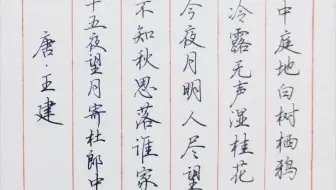 中庭地白树栖鸦
冷露无声湿桂花
今夜月明人尽望
不知秋思落谁家
十五夜望月寄杜郎中
唐·王建